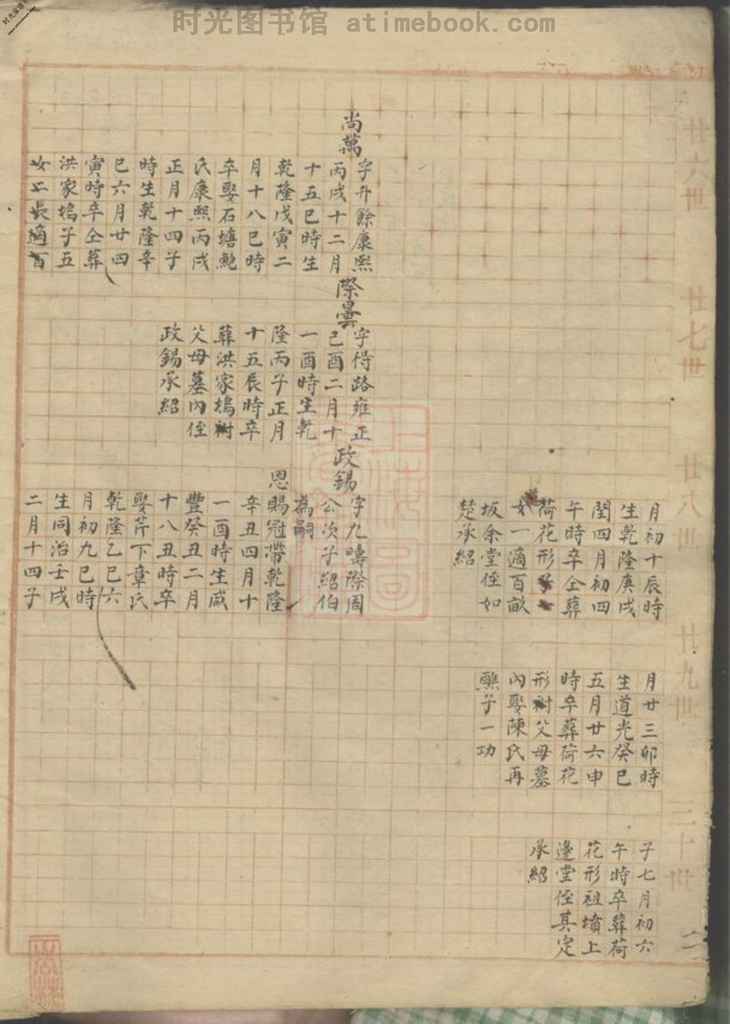 时光图书馆 atimebook.com
廿六世
廿七世
廿八世
廿九世
三十世
月初十辰時
生乾隆庚戌
閏四月初四
午時卒仝葬
荷花形
女一適百畝
坂余堂侄如
楚承紹
月廿三卯時
生道光癸巳
五月廿六申
時卒葬荷花
形树父母墓
內娶陳氏再
熙子一功
子七月初六
午時卒葬荷
花形祖墳上
邊堂侄其定
承紹
尚萬
字升餘康熙
丙戌十二月
十五巳時生
乾隆戊寅二
月十八巳時
卒娶石塘鮑
氏康熙丙戌
正月十四子
時生乾隆辛
巳六月廿四
寅時卒仝葬
洪家塢子五
女二長適百
際曇
字得路雍正
己酉二月十
一酉時生乾
隆丙子正月
十五辰時卒
葬洪家塢树
父母墓內侄
政錫承紹
政錫
字九疇際周
公次子紹伯
為嗣
恩賜冠帶乾隆
辛丑四月十
一酉時生咸
豐癸丑二月
十八丑時卒
娶芹下章氏
乾隆乙巳六
月初九巳時
生同治壬戌
二月十四子